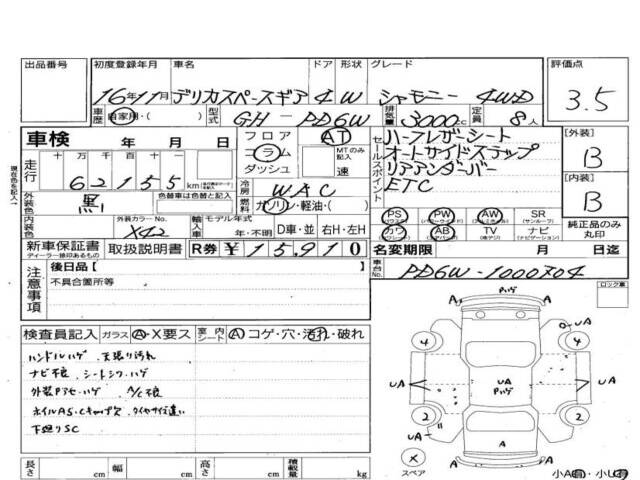 出品番号 初度登録年月 車名 ドア 形状 グレード 評価点
16年11月 デリカスペースギア 4 W シャモニー 4WD 3.5
車歴 自家用・( ) 型式 GH-PD6W 排気量 3000cc 定員 8人
車検 年 月 日 フロア AT
コラム MTのみ記入
ダッシュ 速
セールスポイント
ハーフレザーシート
オートサイドステップ
リアアンダーバー
ETC
[外装]
B
[内装]
B
走行 十 万 千 百 十
62155km
冷房 WAC
外装色 黒 色替車は色替と記入 燃料 ガソリン・軽油・( )
内装色 外装カラーNo. X42 輸入車 モデル年式 年・不明 D車・並 右H・左H
PS AW PW SR (サンルーフ)
カワ AB TV ナビ (ナビゲーション)
純正品のみ丸印
新車保証書 取扱説明書 R券 ¥15,910
ディーラー捺印あるもの
名変期限 月 日迄
車台No. PD6W-1000704
注意事項 後日品【 】
不具合箇所等
ロック車
検査員記入 ガラス A・X要ス 室内シート A コゲ・穴・汚れ・破れ
ハンドルハゲ 天張り汚れ
ナビ不良 シートシワ・ハゲ
外装Pアセ・ハゲ A/C不良
ホイルAS・Cキャップ欠 タイヤサイズ違い
下廻りSC
Pハゲ
A A
UA
4 4
UA UA Pハゲ UA
2 2
UA A
X
スペア
小A有・小U有
長さ cm 幅 cm 高さ cm 積載量 kg
現在色を記入